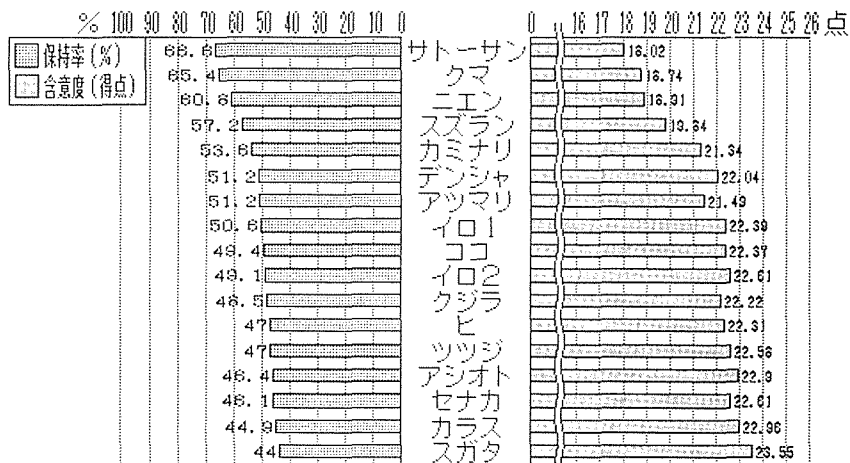 % 100 90 80 70 60 50 40 30 20 10 0
0 16 17 18 19 20 21 22 23 24 25 26 点
保持率(%)
含意度(得点)
66.6 サトーサン 18.02
65.4 クマ 18.74
60.6 ニエン 18.91
57.2 スズラン 19.84
53.6 カミナリ 21.34
51.2 デンシャ 22.04
51.2 アツマリ 21.49
50.6 イロ1 22.39
49.4 ココ 22.37
49.1 イロ2 22.61
48.5 クジラ 22.22
47 ヒ 22.31
47 ツツジ 22.56
46.4 アシオト 22.9
46.1 セナカ 22.61
44.9 カラス 22.96
44 スガタ 23.55